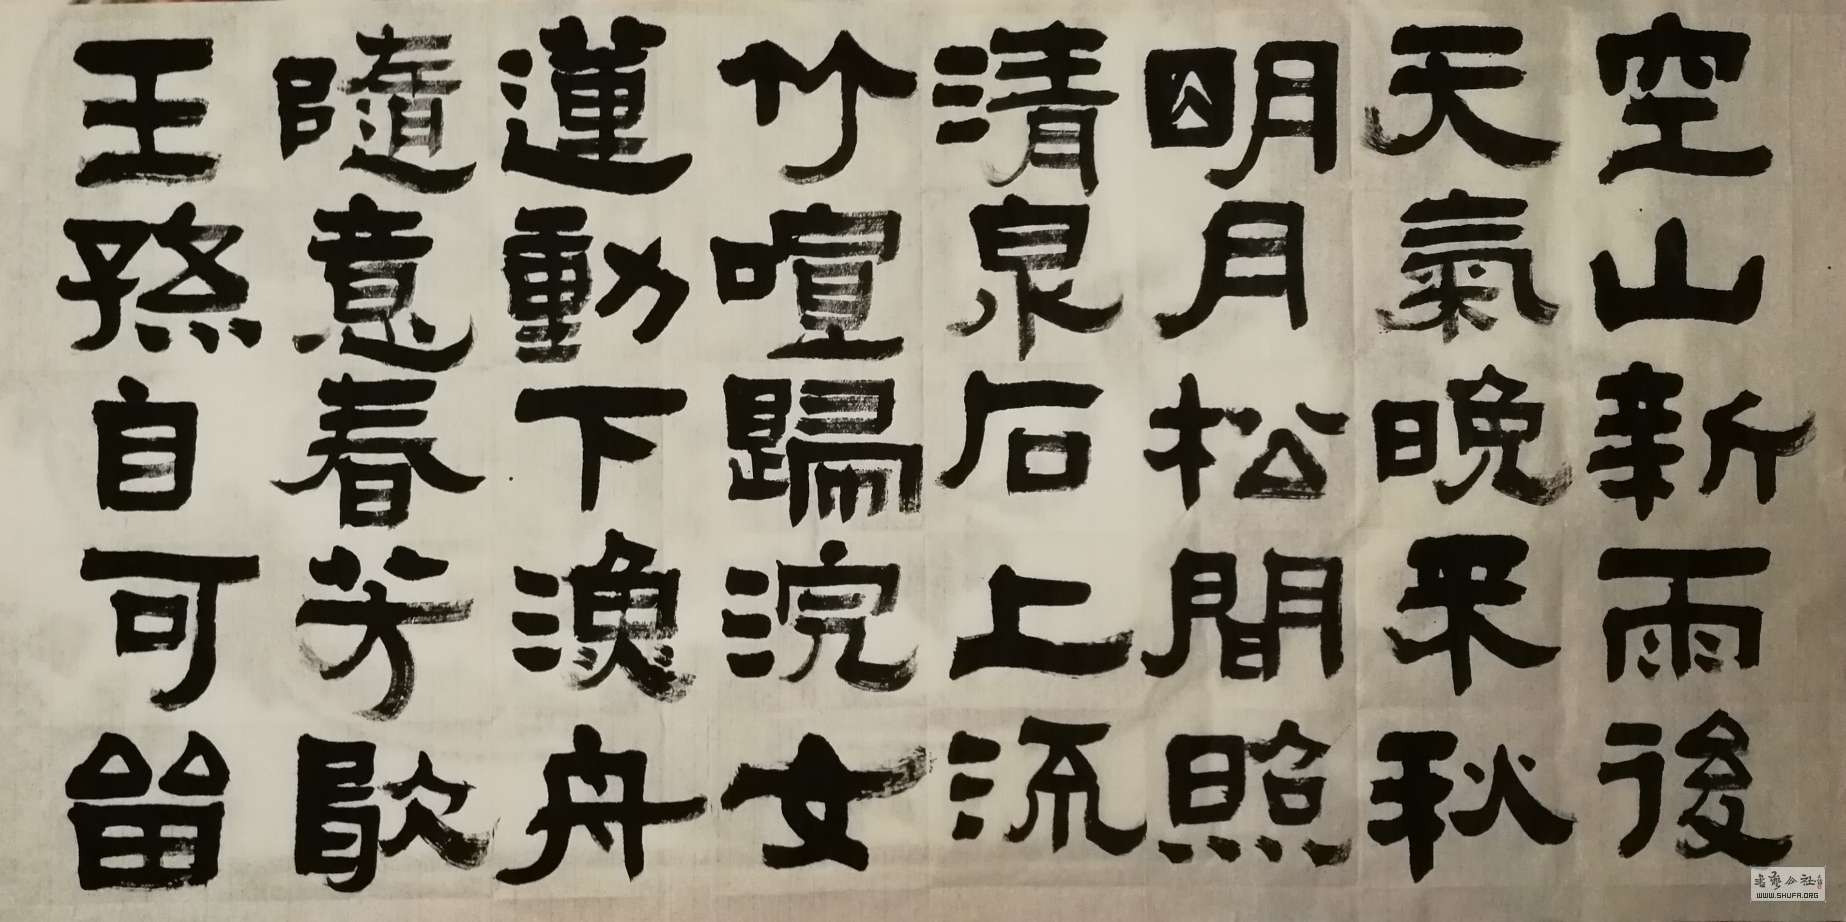 空山新雨後
天氣晚來秋
明月松間照
清泉石上流
竹喧歸浣女
蓮動下漁舟
隨意春芳歇
王孫自可留
WWW.SHUFA.ORG